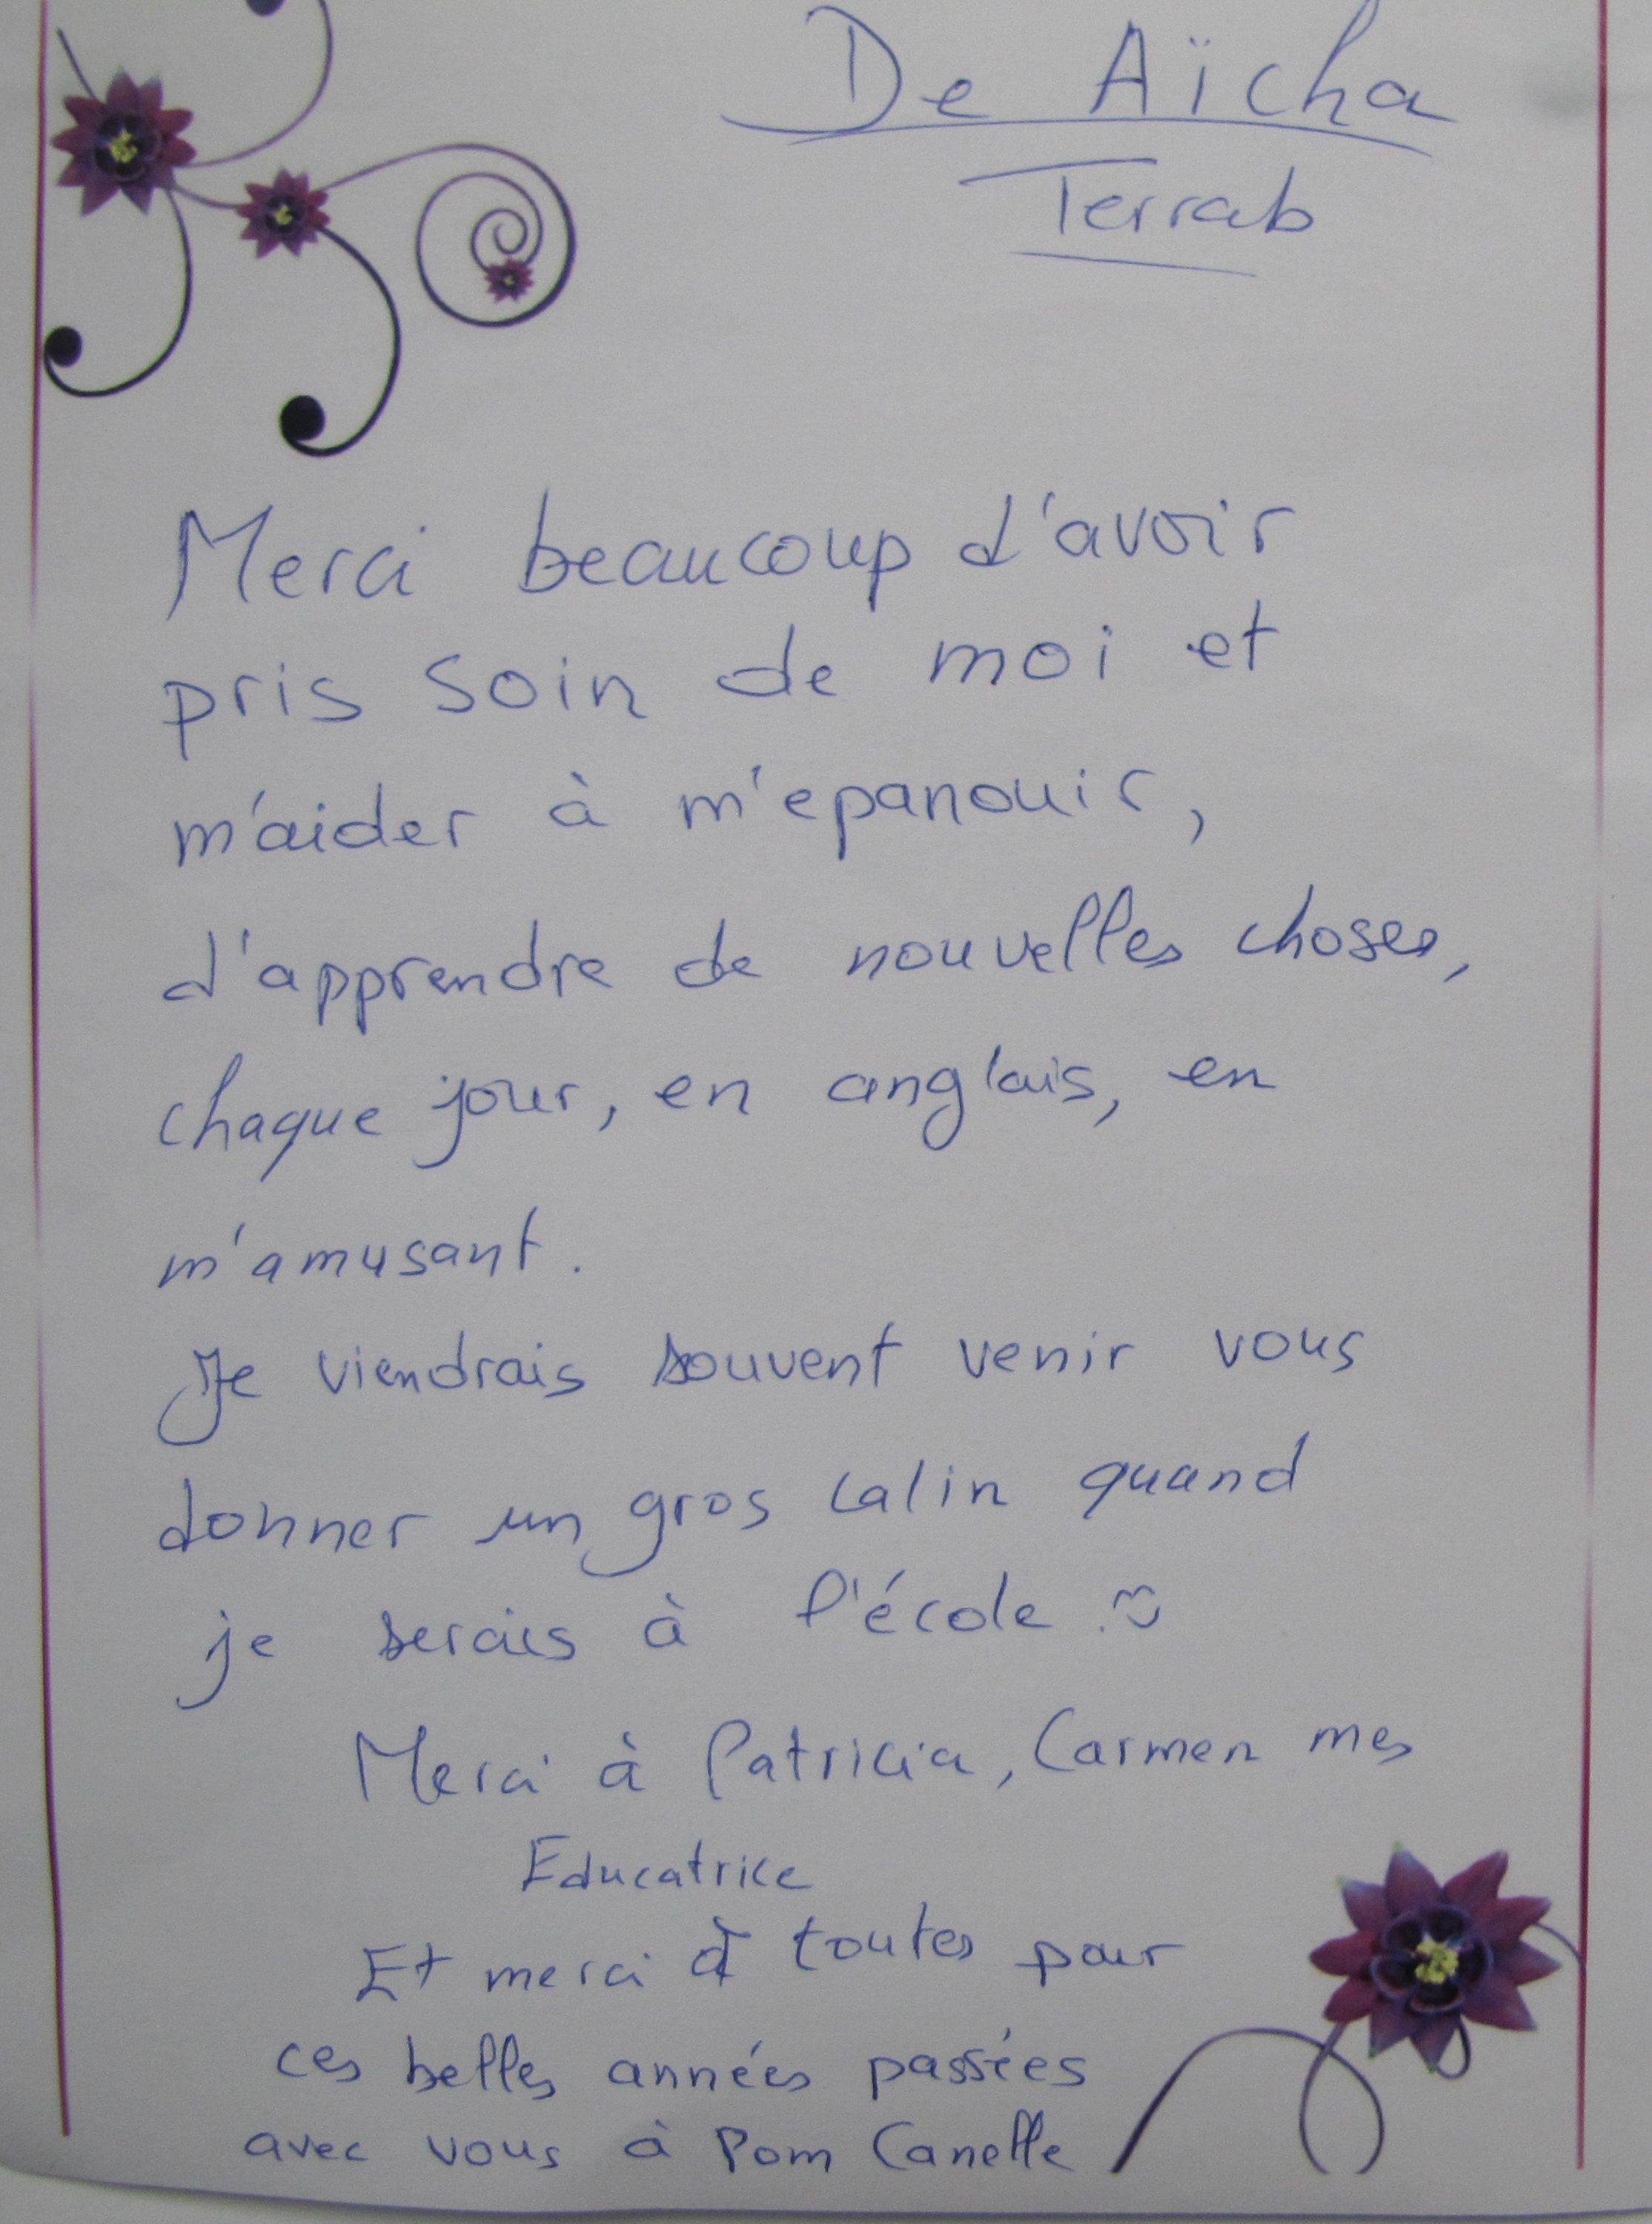 De Aïcha
Terrab
Merci beaucoup d'avoir
pris soin de moi et
m'aider à m'epanouir,
d'apprendre de nouvelles choses,
chaque jour, en anglais, en
m'amusant.
Je viendrais souvent venir vous
donner un gros calin quand
je serais à l'école.
Merci à Patricia, Carmen mes
Educatrice
Et merci à toutes pour
ces belles années passées
avec vous à Pom Canelle